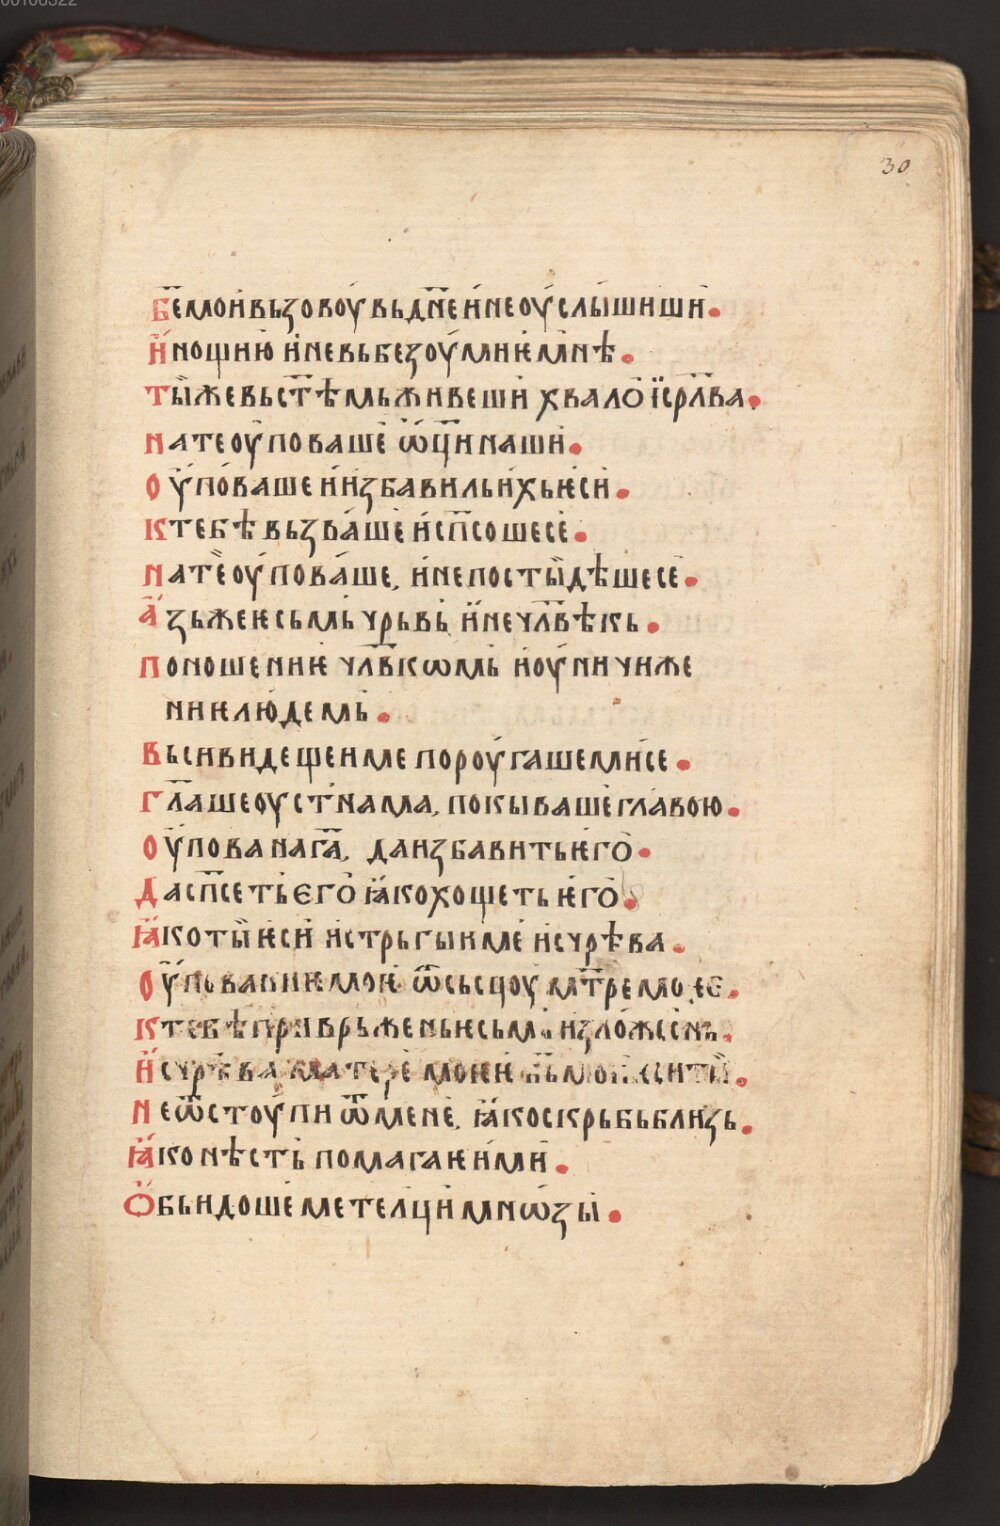 30
Б҃емои вьзовоу вь дн҃е и не оуслышиши.
И нощию и не вь безоумиѥ мнѣ.
Ты же вь ст҃ѣмь живеши хвало їср҃лва.
На те оуповаше ѿц҃и наши.
Оуповаше и избавиль ихь ѥси.
К тебѣ вьзваше и сп҃соше се.
На те оуповаше, и не постыдѣше се.
Азь же ѥсьмь чрьвь и не чл҃вѣкь.
Поношениѥ чл҃вкѡмь и оуничиже
ниѥ людемь.
Вьси видещеи ме пороугаше ми се.
Гл҃аше оустнама, покываше главою.
Оупова на г҃а, да избавить ѥго.
Да сп҃сеть его ꙗко хощеть ѥго.
Ꙗко ты ѥси истрьгыи ме ис чрѣва.
Оупованиѥ моѥ ѿ сьсцоу мт҃ре моее.
К тебѣ приврьжень ѥсьмь из ложеснь.
Ис чрѣва матере моѥи б҃ь мои ѥси ты.
Не ѿстоупи ѿ мене, ꙗко скрьбь близь.
Ꙗко нѣсть помагаѥи ми.
Обьидоше ме телци мнѡзы.